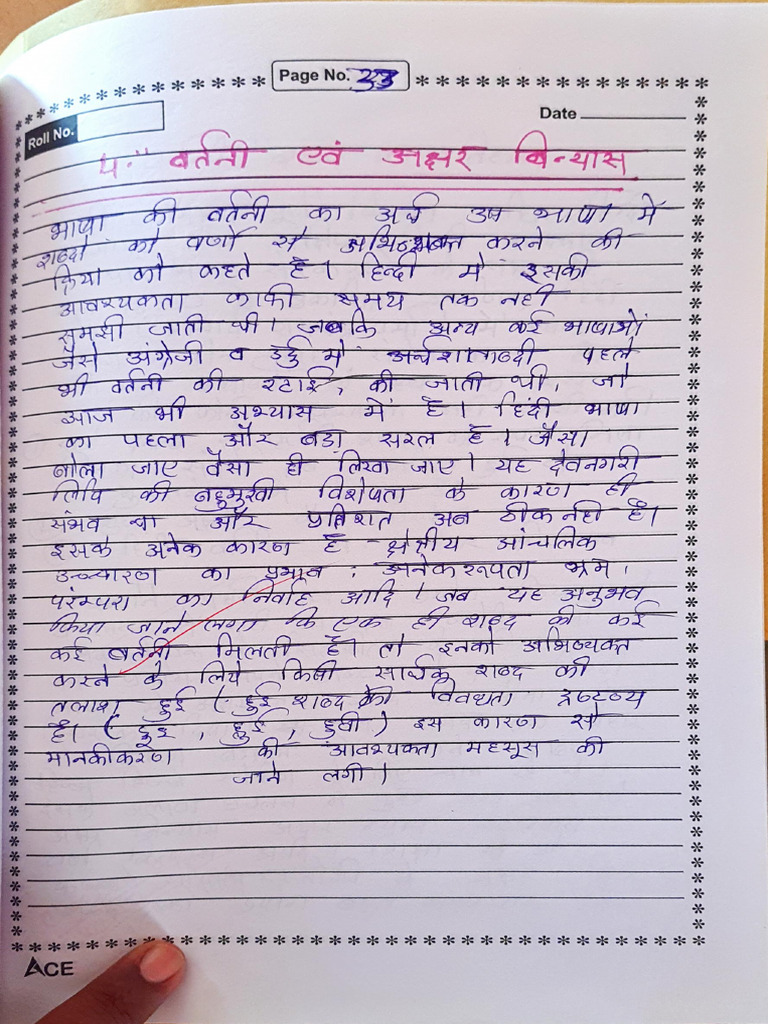 Page No. 33
Date
Roll No.
4. वर्तनी एवं अक्षर विन्यास
भाषा की वर्तनी का अर्थ उस भाषा में
शब्दो को वर्णो से अभिव्यक्त करने की
क्रिया को कहते है। हिन्दी मे इसकी
आवश्यकता काफी समय तक नही
समझी जाती थी। जबकि अन्य कई भाषाओं
जैसे अंग्रेजी व उर्दु मे अर्धशताब्दी पहले
भी वर्तनी की रटाई, की जाती थी, जो
आज भी अभ्यास में है। हिंदी भाषा
का पहला और बड़ा सरल है। जैसा
बोला जाए वैसा ही लिखा जाए। यह देवनगरी
लिपि की बहुमुखी विशेषता के कारण ही
संभव था और प्रतिशत अब ठीक नही है।
इसके अनेक कारण है - क्षेत्रीय आंचलिक
उच्चारण का प्रभाव : अनेकरूपता भ्रम,
परंम्परा का निर्वाह आदि। जब यह अनुभव
किया जाने लगा कि एक ही शब्द की कई
कई बर्तनी मिलती है। तो इनको अभिव्यक्त
करने के लिये किसी सार्थक शब्द की
तलाश हुई (हुई शब्द की विवधता द्रष्टव्य
है। (हुइ, हुई, हुयी) इस कारण से
मानकीकरण की आवश्यकता महसूस की
जाने लगी।
ACE